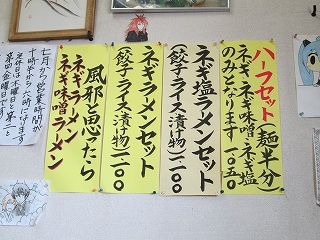 ハーフセット(麺半分)
ネギ・ネギ味噌・ネギ塩
のみとなります 一、〇五〇
ネギ塩ラーメンセット
(餃子ライス漬け物)一、二〇〇
ネギラーメンセット
(餃子ライス漬け物)一、一〇〇
風邪と思ったら
ネギラーメン
ネギ味噌ラーメン
七月から営業時間が
十時半から八時
定休日は木曜日と第二と
第四金曜日です